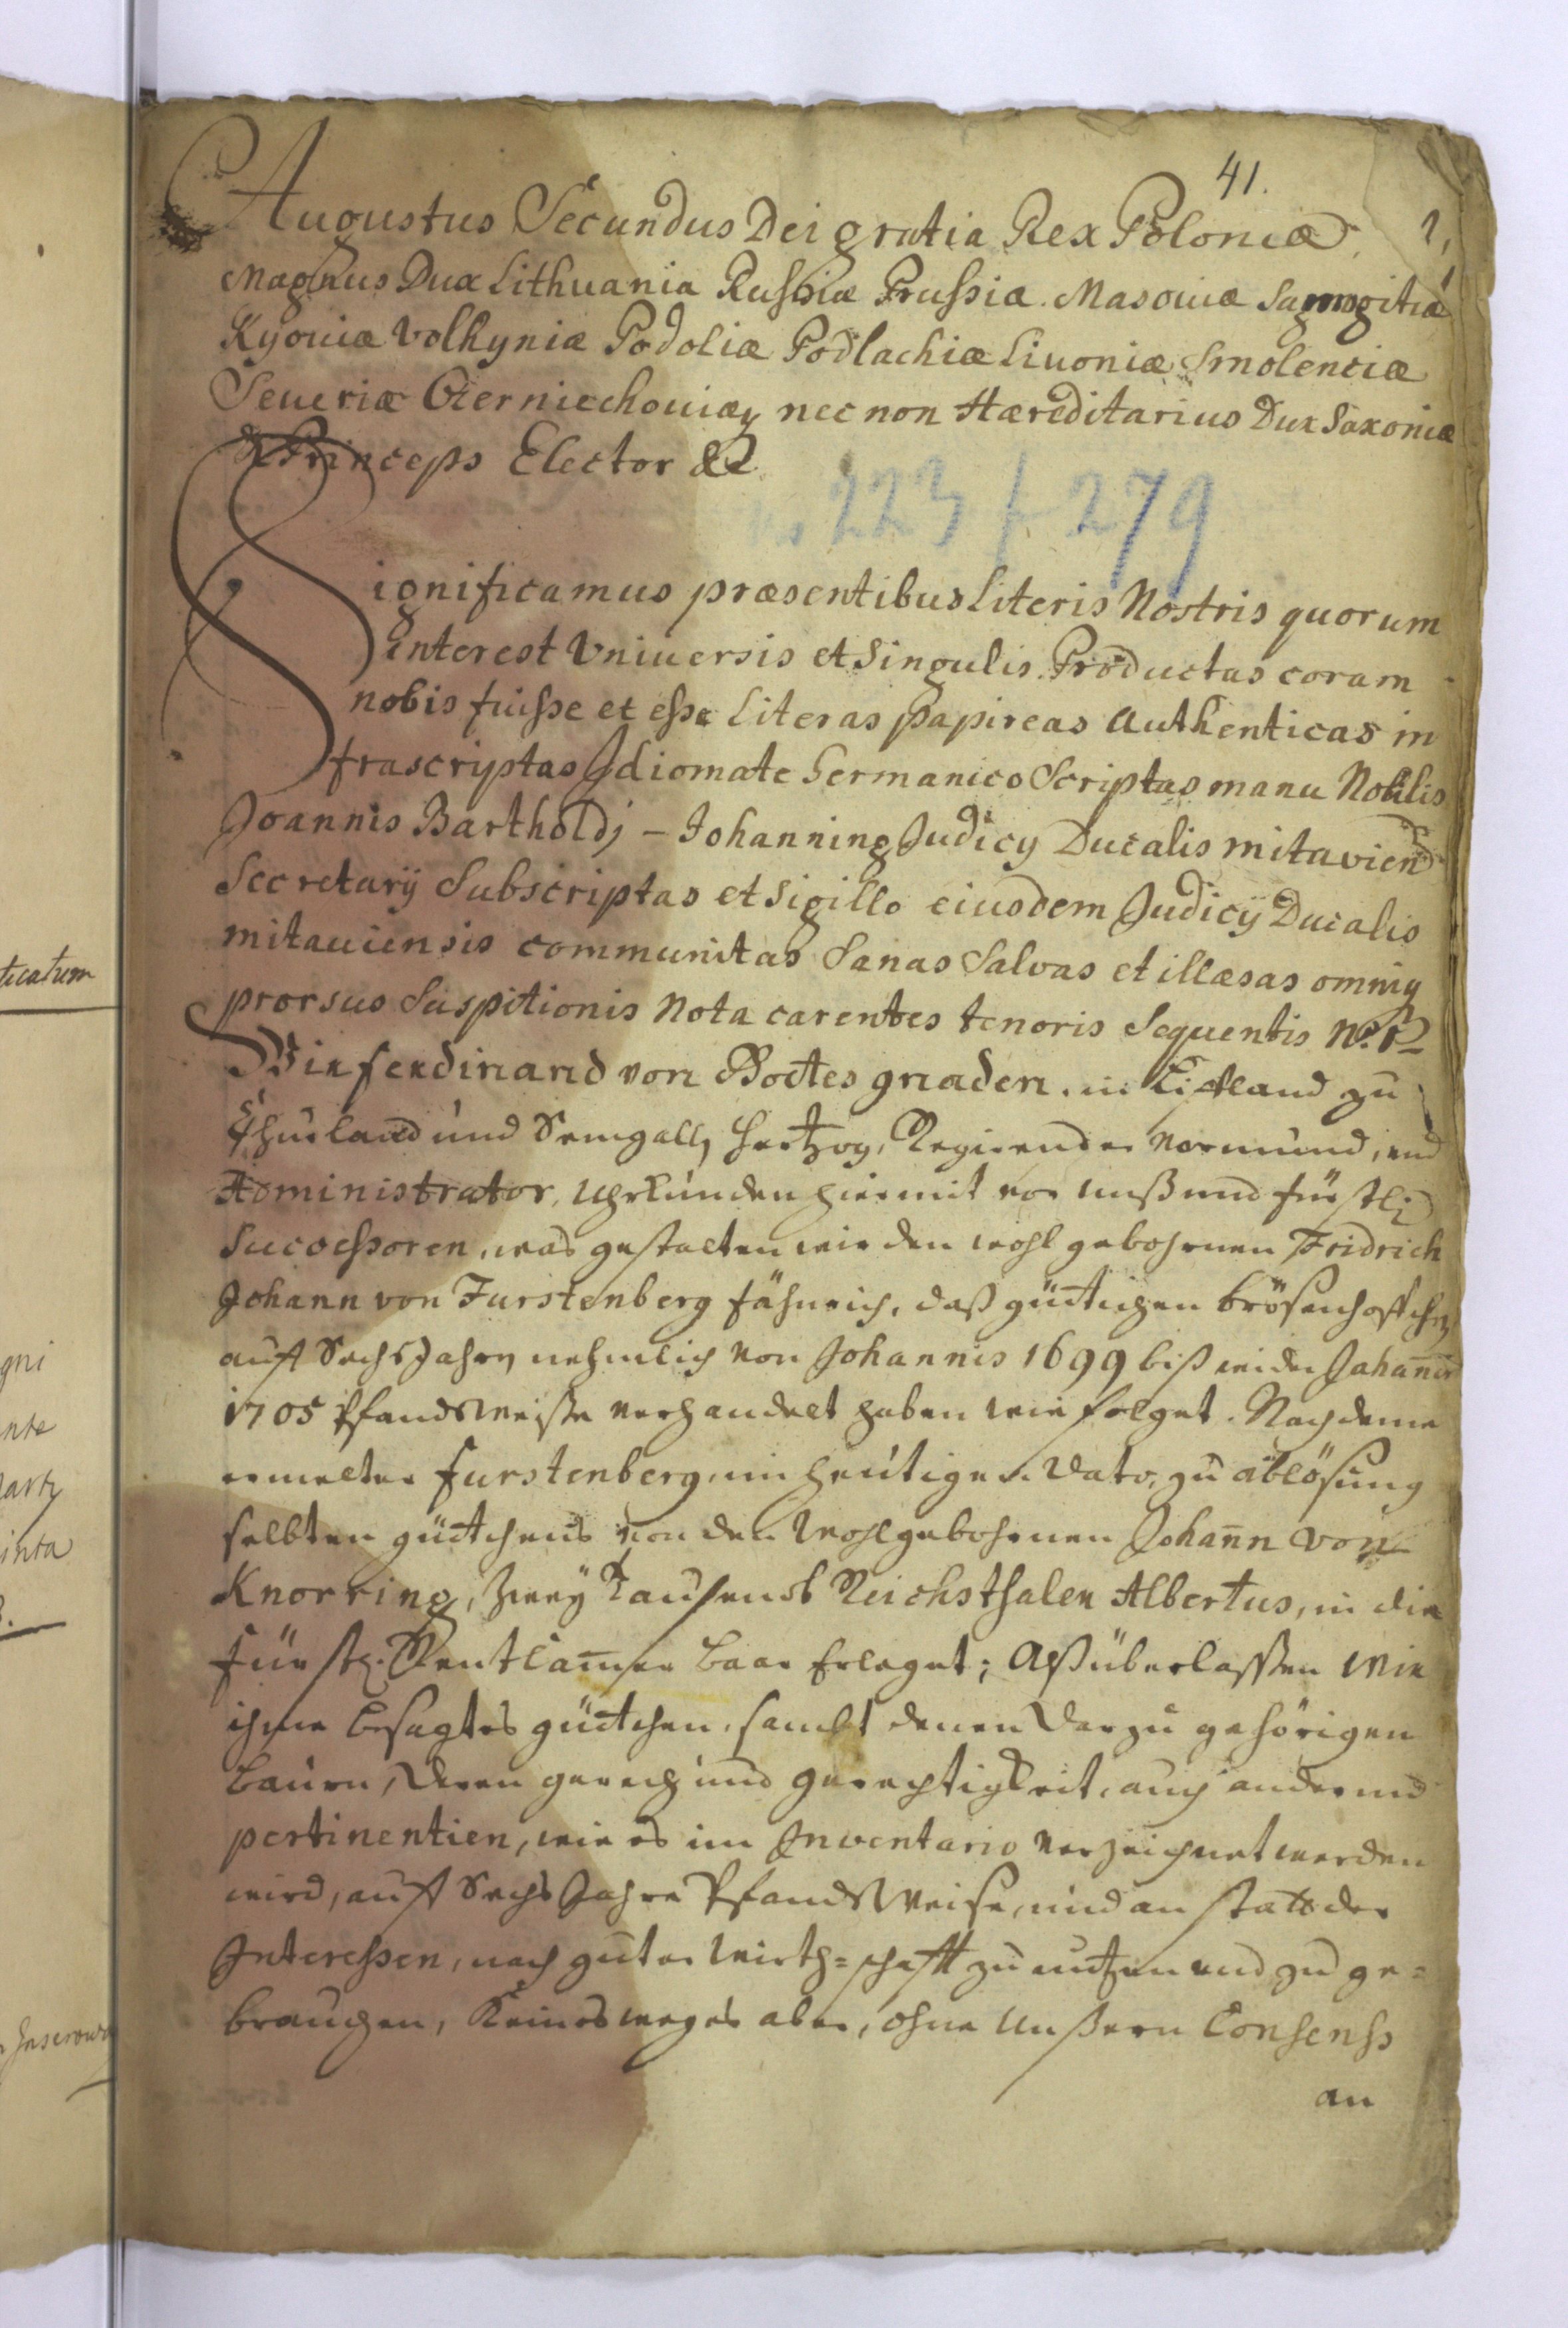 41.
Augustus Secundus Dei gratia Rex Poloniæ,
Magnus Dux Lithuania Russiæ Prussiæ. Masouiæ Samogitiæ
Kyouiæ Volhyniæ Podoliæ Podlachiæ Liuoniæ Smolenciæ
Seueriæ Czerniechouiæq nec non Hæreditarius Dux Saxoniæ
& Princeps Elector &c
223 / 279
Significamus præsentibus Literis Nostris quorum
interest Vniuersis et Singulis. Productas coram
nobis fuisse et esse Literas papireas Authenticas in
frascryptas Idiomate Germanico Scriptas manu Nobilis
Joannis Bartholdj – Johanning Judicy Ducalis mitavien
Secretarÿ Subscriptas et Sigillo eiusdem Judicÿ Ducalis
mitauiensis communitas Sanas Salvas et illæsas omniq
prorsus Suspitionis Nota carentes tenoris Sequentis
Wir ferdinand von Gottes gnaden. in Liffland zu
Churland und Semgalln Hertzog, Regirender Vormund, und
Administrator, Uhrkunden hiermit vor unß und fürstl
Successoren, was gestalten wir den wohl gebohrnen Fridrich
Johann von Furstenberg fähnrich, daß güttchen brösenhoffchen
auff Sechs Jahrn nehmlich von Johannis 1699 biß wider Johannis
1705 Pfandsweise verhandelt haben wie folget. Nach deme
ermelter furstenberg, im heütigen Dato, zu ablösung
selbten güttchens von den Wohlgebohrnen Johann von
Knorring, Zweÿ Tausend Reichsthaler Albertus, in die
fürstl. Rentkammer baar Erleget; Alß überlassen Wir
ihme besagtes güttchen, sambt denen darzu gehörigen
bauren, deren gerech und gerechtigkeit, auch andernd
pertinentien, wie es im Inventario verzeichnet werden
wird, auff Sechs Jahre Pfandsweise, und an statt der
Interessen, nach guter Wirth=schafft zu nutzen und zu ge=
brauchen, Keines weges aber, ohne Unßern Consenss
an